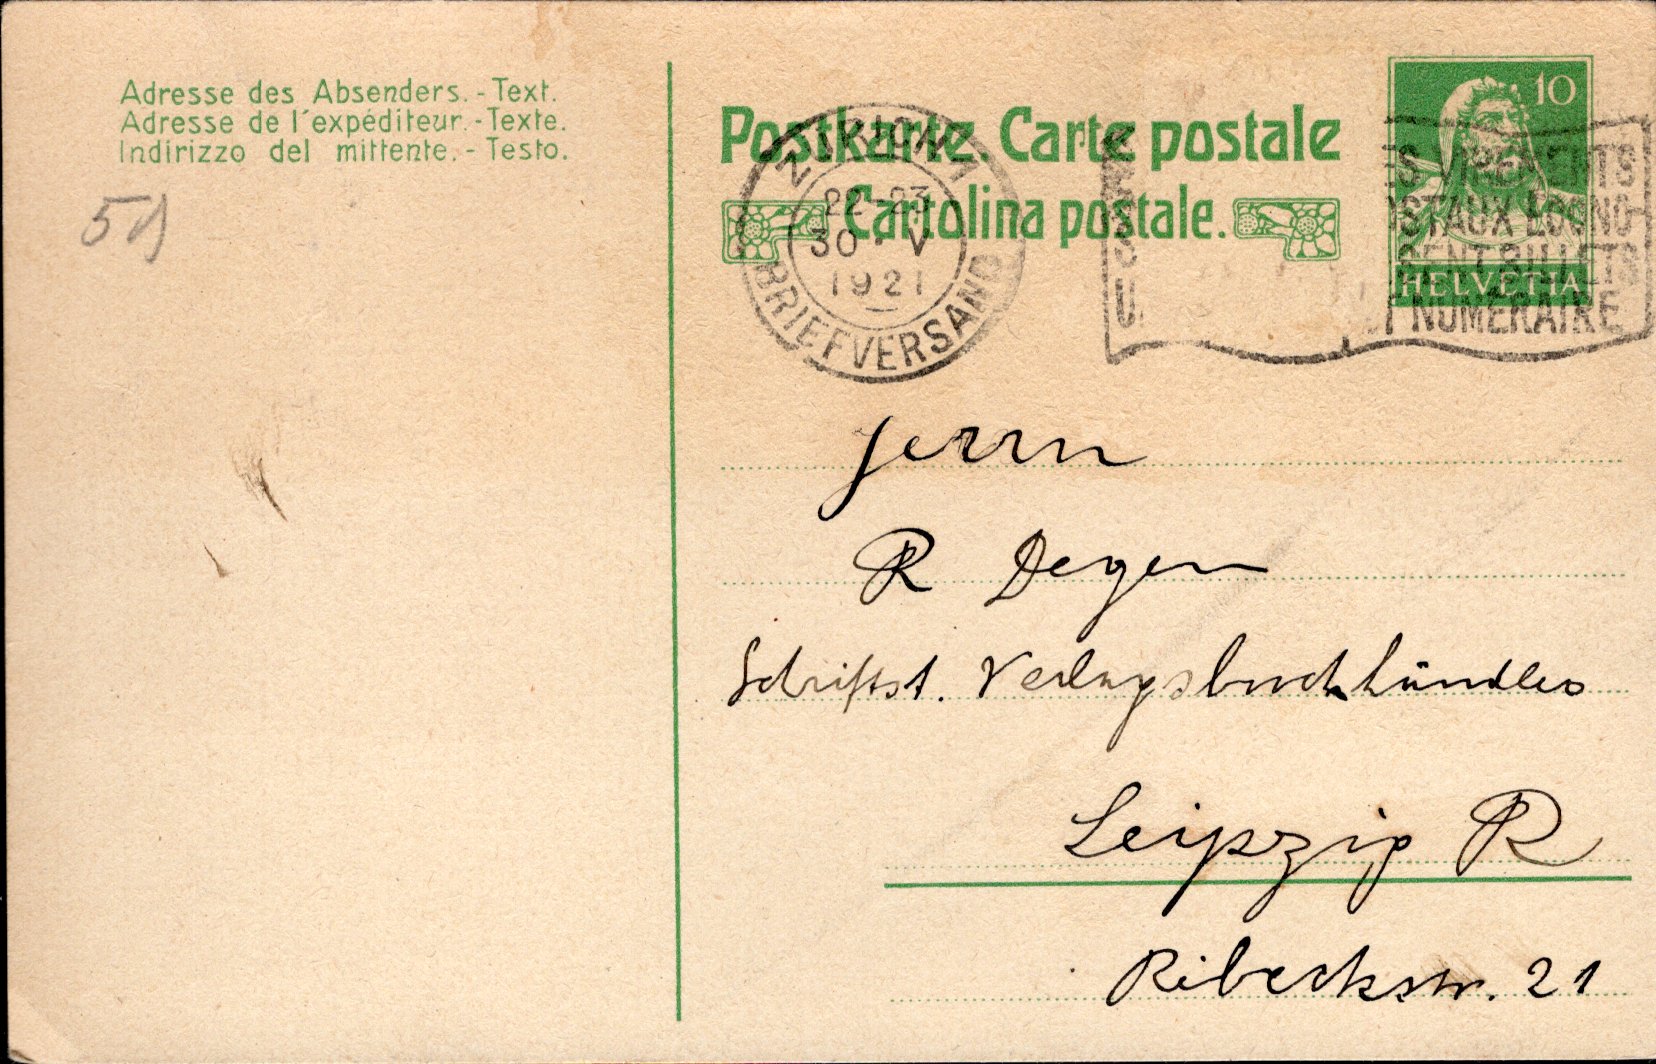 Adresse des Absenders. - Text.
Adresse de l'expéditeur. - Texte.
Indirizzo del mittente. - Testo.
51
Postkarte. Carte postale
Cartolina postale.
10
HELVETIA
ZÜRICH 1
22-23
30·V
1921
BRIEFVERSAND
VIREMENTS
POSTAUX ECONO-
BILLETS
NUMERAIRE
Herrn
R Degen
Schriftst. Verlagsbuchhändler
Leipzig R
Ribeckstr. 21